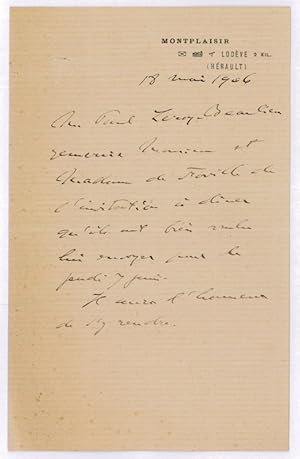 MONTPLAISIR
LODÈVE 2 KIL.
(HÉRAULT)
18 mai 1906
M. Paul Leroy-Beaulieu
remercie Monsieur et
Madame de Foville de
l'invitation à diner
qu'ils ont bien voulu
lui envoyer pour le
jeudi 7 juin.
Il aura l'honneur
de s'y rendre.